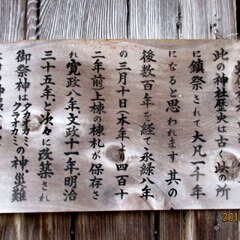 此の神社歴史は古く此の所
に鎮祭されて大凡八十年
になると思われます其の
後数百年を経て永緑八年
の三月十日(本年より四百十
二年前)上棟の棟札が保存さ
れ寛政八年文政十一年明治
三十五年と次々に改築され
御祭神はタカオカミクラオカミの神災難
201